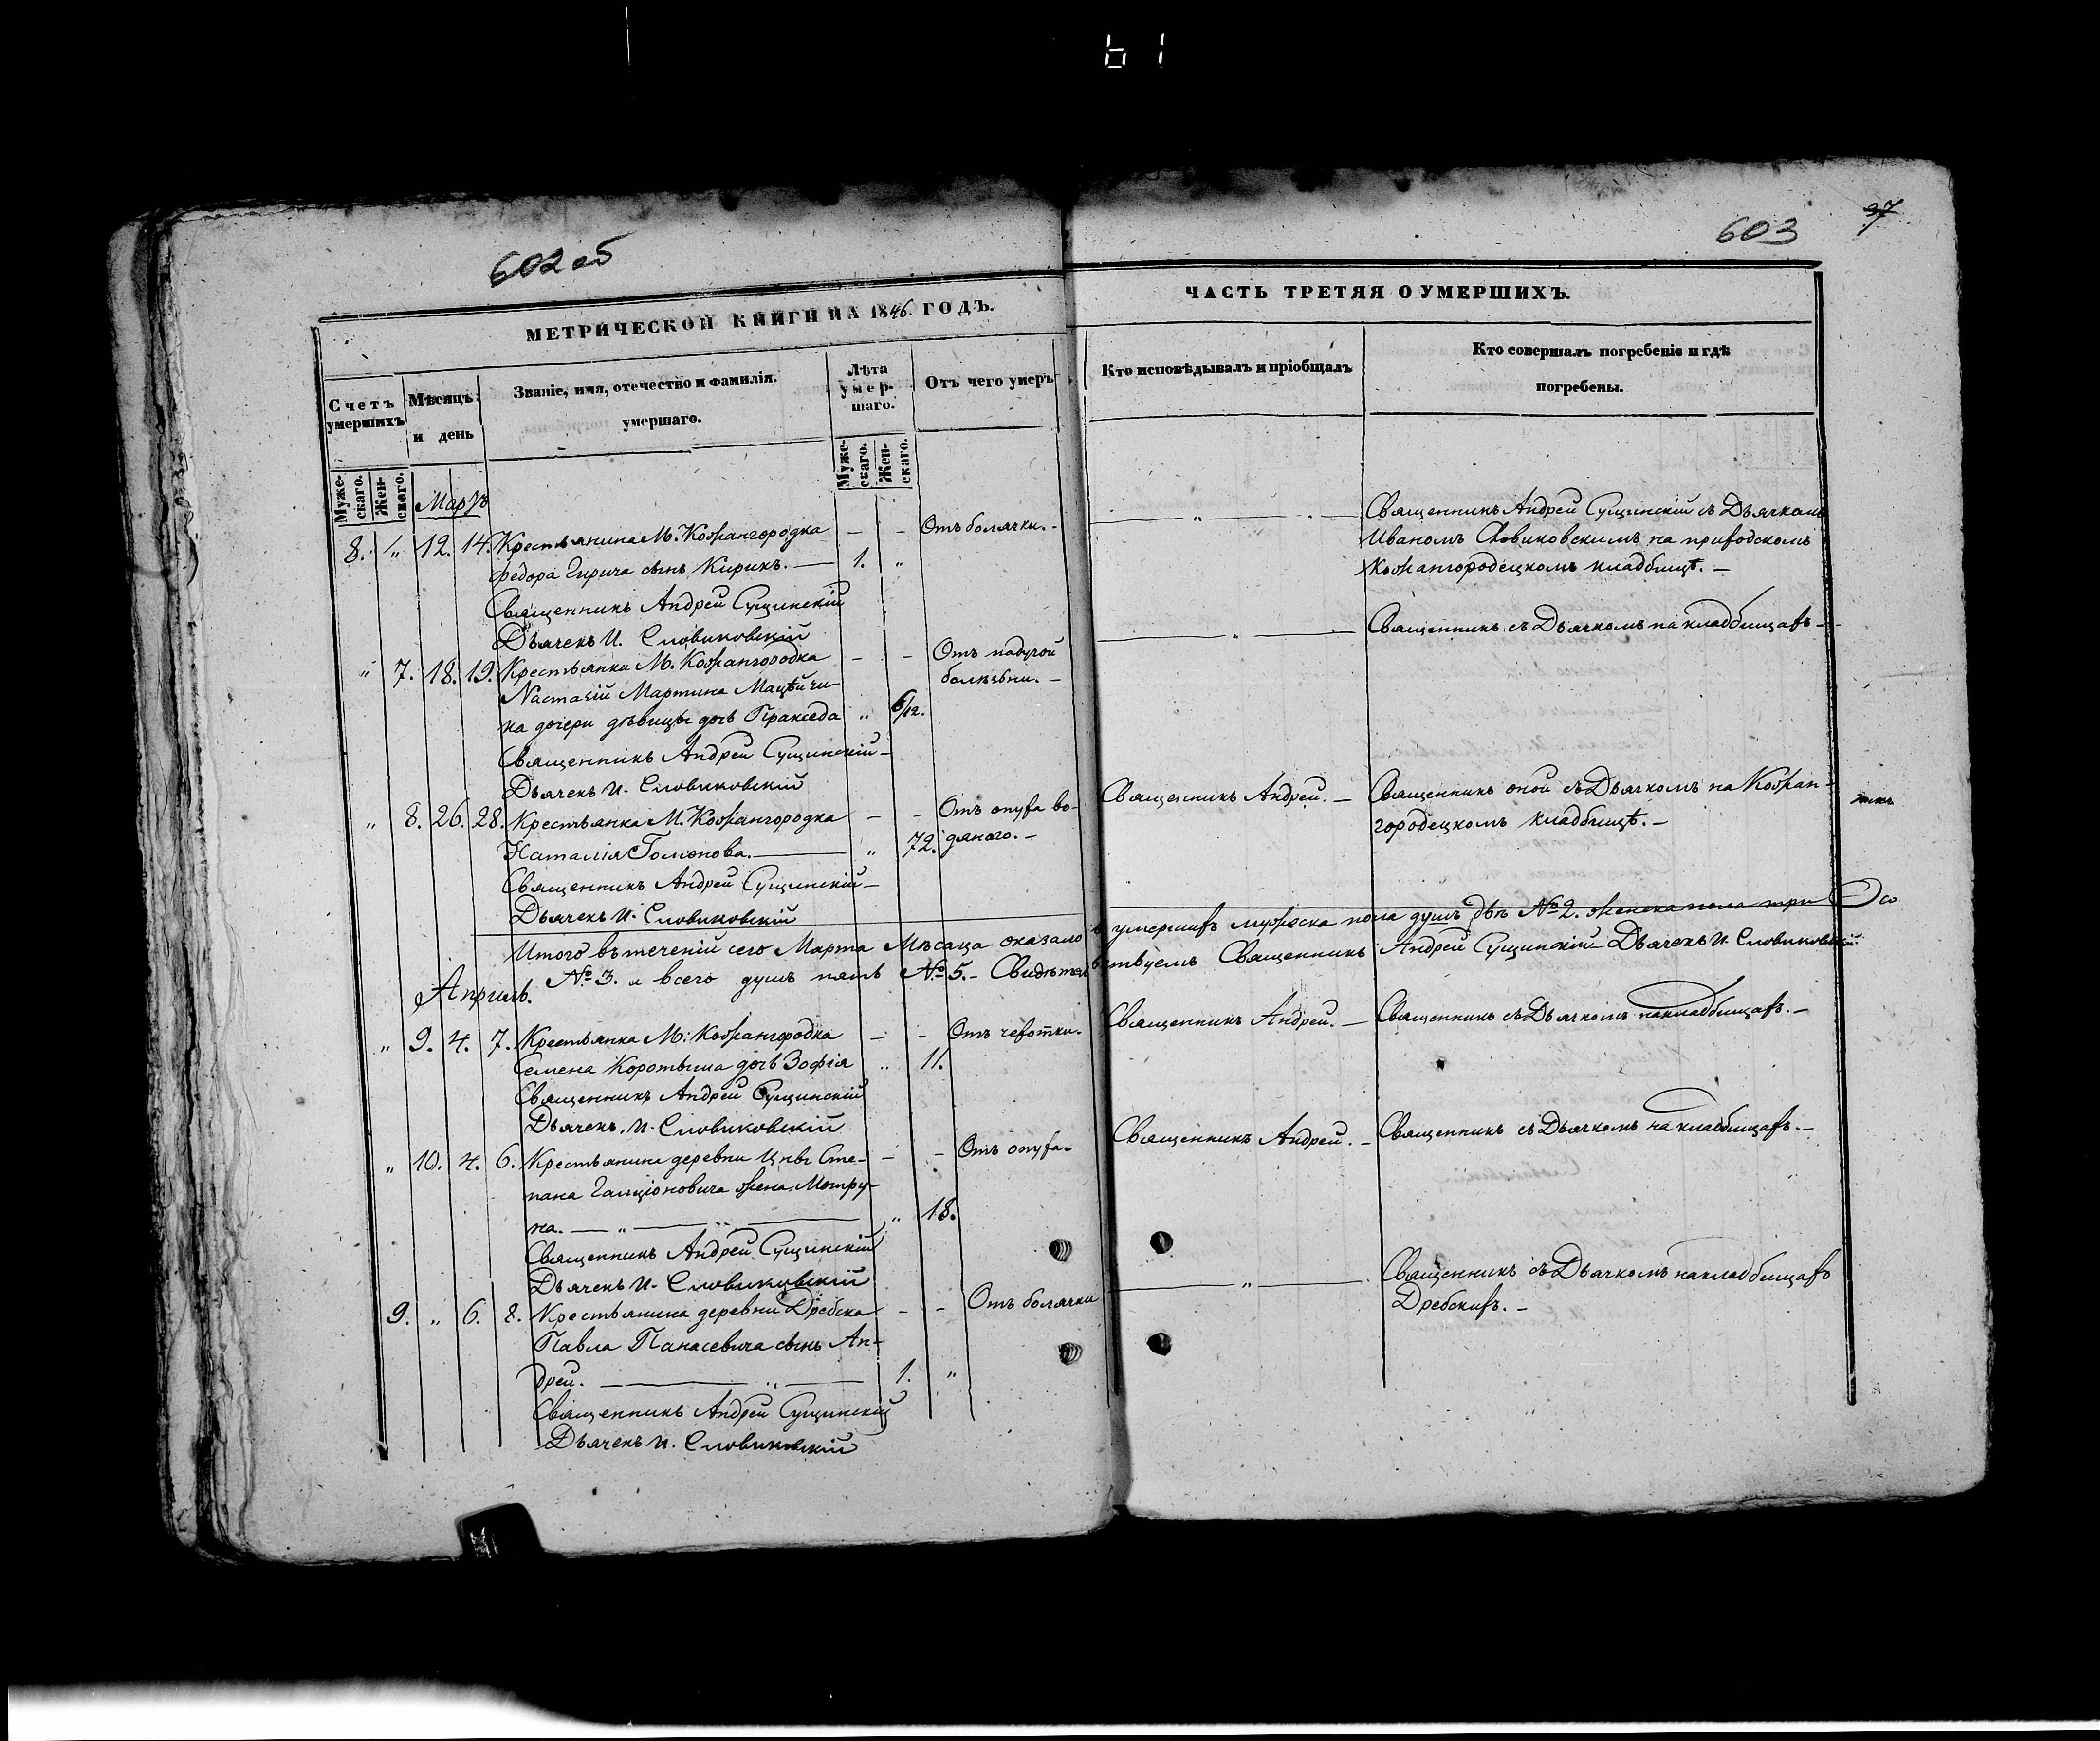 61
602 об
603
37
МЕТРИЧЕСКОЙ КНИГИ НА 1846. ГОДЪ.
ЧАСТЬ ТРЕТЯЯ О УМЕРШИХЪ.
Счетъ умершихъ
Муже-скаго.
Жен-скаго.
Мѣсяцъ и день
Званіе, имя, отечество и фамилія.
умершаго.
Лѣта умер-шаго.
Муже-скаго.
Жен-скаго.
Отъ чего умеръ
Кто исповѣдывалъ и пріобщалъ
Кто совершалъ погребеніе и гдѣ
погребены.
Мартъ
8. „ 12. 14. Крестьянина М. Кожангородка — - Отъ болячки. -
Федора сынъ Кирикъ. — 1. „
Священникъ Андрей Сущинскій
Дьячекъ И. Словиковскій
— „ — Священникъ Андрей Сущинскій съ Дьячкомъ
Иваномъ Словиковскимъ на приходскомъ
Кожангородецкомъ кладбищѣ. —
„ 7. 18. 19. Крестьянки М. Кожангородка - - Отъ падучой
Настасіи Мартина болѣзни. —
на дочери дѣвицы дочь Пракседа „ 6/12.
Священникъ Андрей Сущинскій —
Дьячекъ И. Словиковскій
— „ — Священникъ съ Дьячкомъ на кладбищахъ —
„ 8. 26. 28. Крестьянка М. Кожангородка — - Отъ опуха во-
Наталія Гомонова. — „ 72. дянаго. —
Священникъ Андрей Сущинскій —
Дьячекъ И. Словиковскій
Священникъ Андрей. — Священникъ оной съ Дьячкомъ на Кожан-
городецкомъ кладбищѣ. —
Итого въ теченіи сего Марта Мѣсаца оказалось умершихъ мужеска пола душъ двѣ №2. женска пола три
№3. а всего душъ пять №5. — Свидѣтельствуемъ Священникъ Андрей Сущинскій Дьячекъ И. Словиковскій
Апрѣль.
„ 9. 4. 7. Крестьянка М. Кожангородка — - Отъ чехотки.
Семена Коротыша дочь Зофія „ 11.
Священникъ Андрей Сущинскій
Дьячекъ И. Словиковскій
Священникъ Андрей. — Священникъ съ Дьячкомъ на кладбищахъ. —
„ 10. 4. 6. Крестьянина деревни Цны Сте- — - Отъ опуха.
пана жена Мотру-
на. — „ — „ — „ 18.
Священникъ Андрей Сущинскій
Дьячекъ И. Словиковскій
Священникъ Андрей. — Священникъ съ Дьячкомъ на кладбищахъ. —
9. „ 6. 8. Крестьянина деревни Дребска - - Отъ болячки
Павла Панасевича сынъ Ан-
дрей. — „ — 1. „
Священникъ Андрей Сущинскій
Дьячекъ И. Словиковскій
— „ — Священникъ съ Дьячкомъ на кладбищахъ
Дребскихъ. —